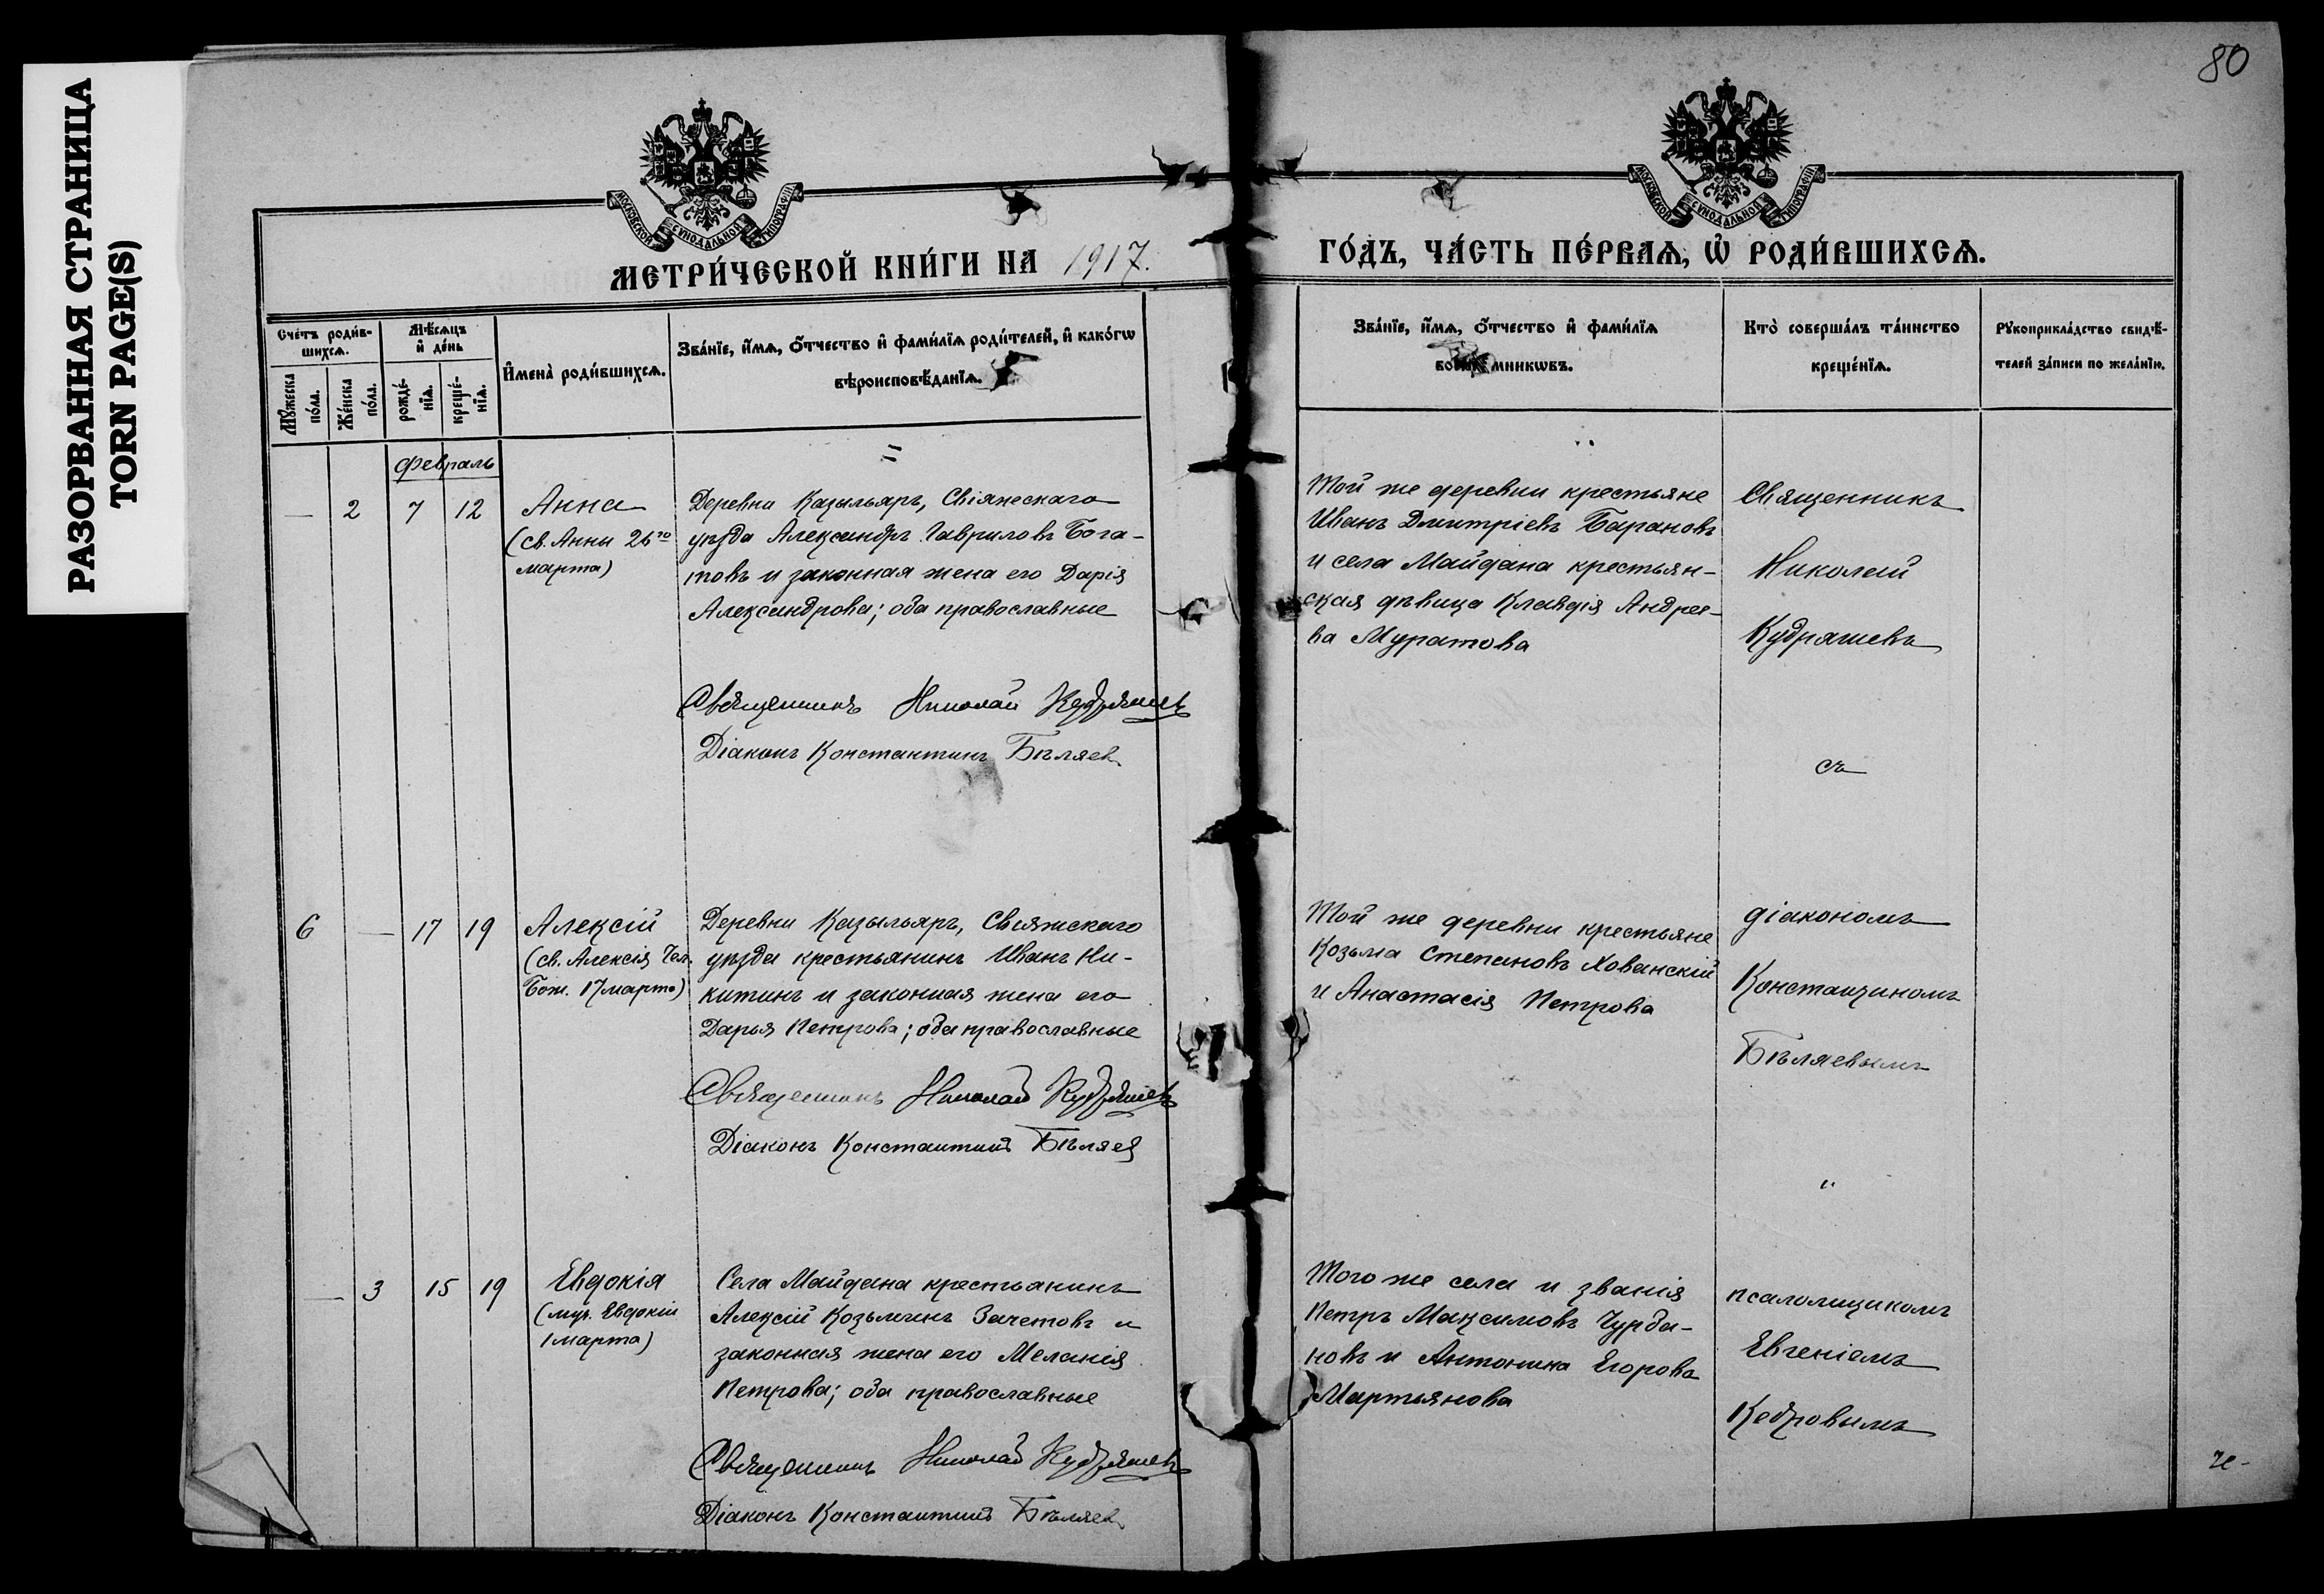 РАЗОРВАННАЯ СТРАНИЦА
TORN PAGE(S)
80
МОСКОВСКОЙ СѴНОДАЛЬНОЙ ТИПОГРАФІИ
МОСКОВСКОЙ СѴНОДАЛЬНОЙ ТИПОГРАФІИ
МЕТРИ́ЧЕСКОЙ КНИ́ГИ НА 1917.
ГО́ДЪ, ЧА́СТЬ ПЕ́РВАѦ, Ѡ҆ РОДИ́ВШИХСѦ.
Сче́тъ роди́в-
шихсѧ.
Мꙋ́жеска
по́ла.
Же́нска
по́ла.
Мѣ́сѧцъ
и҆ де́нь
рожде́-
нїѧ.
креще́-
нїѧ.
И҆мена̀ роди́вшихсѧ.
Зва́нїе, и҆́мѧ, ѻ҆́тчество и҆ фами́лїѧ роди́телей, и҆ како́гѡ
вѣроисповѣ́данїѧ.
Зва́нїе, и҆́мѧ, ѻ҆́тчество и҆ фами́лїѧ
мникѡвъ.
Кто̀ соверша́лъ та́инство
креще́нїѧ.
Рꙋкоприкла́дство свидѣ́-
телей за́писи по жела́нїю.
Февраль
— 2 7 12
Анна
(св. Анны 26го
марта)
Деревни Казыльяръ, Свіяжскаго
уѣзда Александръ Гавриловъ Бога-
товъ и законная жена его Дарія
Александрова; оба православные
Священникъ Николай Кудряшевъ
Діаконъ Константинъ Бѣляев
Той же деревни крестьяне
Иванъ Дмитріевъ Барановъ
и села Майдана крестьян-
ская дѣвица Клавдія Андрее-
ва Муратова
Священникъ
Николай
Кудряшевъ
съ
6 — 17 19
Алексій
(св. Алексія Чел.
Бож. 17 марта)
Деревни Казыльяръ, Свіяжскаго
уѣзда крестьянинъ Иванъ Ни-
китинъ и законная жена его
Дарья Петрова; оба православные
Священникъ Николай Кудряшевъ
Діаконъ Константинъ Бѣляев
Той же деревни крестьяне
Козьма Степановъ Хованскій
и Анастасія Петрова
діакономъ
Константиномъ
Бѣляевымъ
"
— 3 15 19
Евдокія
(муч. Евдокіи
1 марта)
Села Майдана крестьянинъ
Алексій Козьминъ Зачетовъ и
законная жена его Меланія
Петрова; оба православные
Священникъ Николай Кудряшевъ
Діаконъ Константинъ Бѣляев
Того же села и званія
Петръ Максимовъ Чурба-
новъ и Антонина Егорова
Мартьянова
псаломщикомъ
Евгеніемъ
Кедровымъ